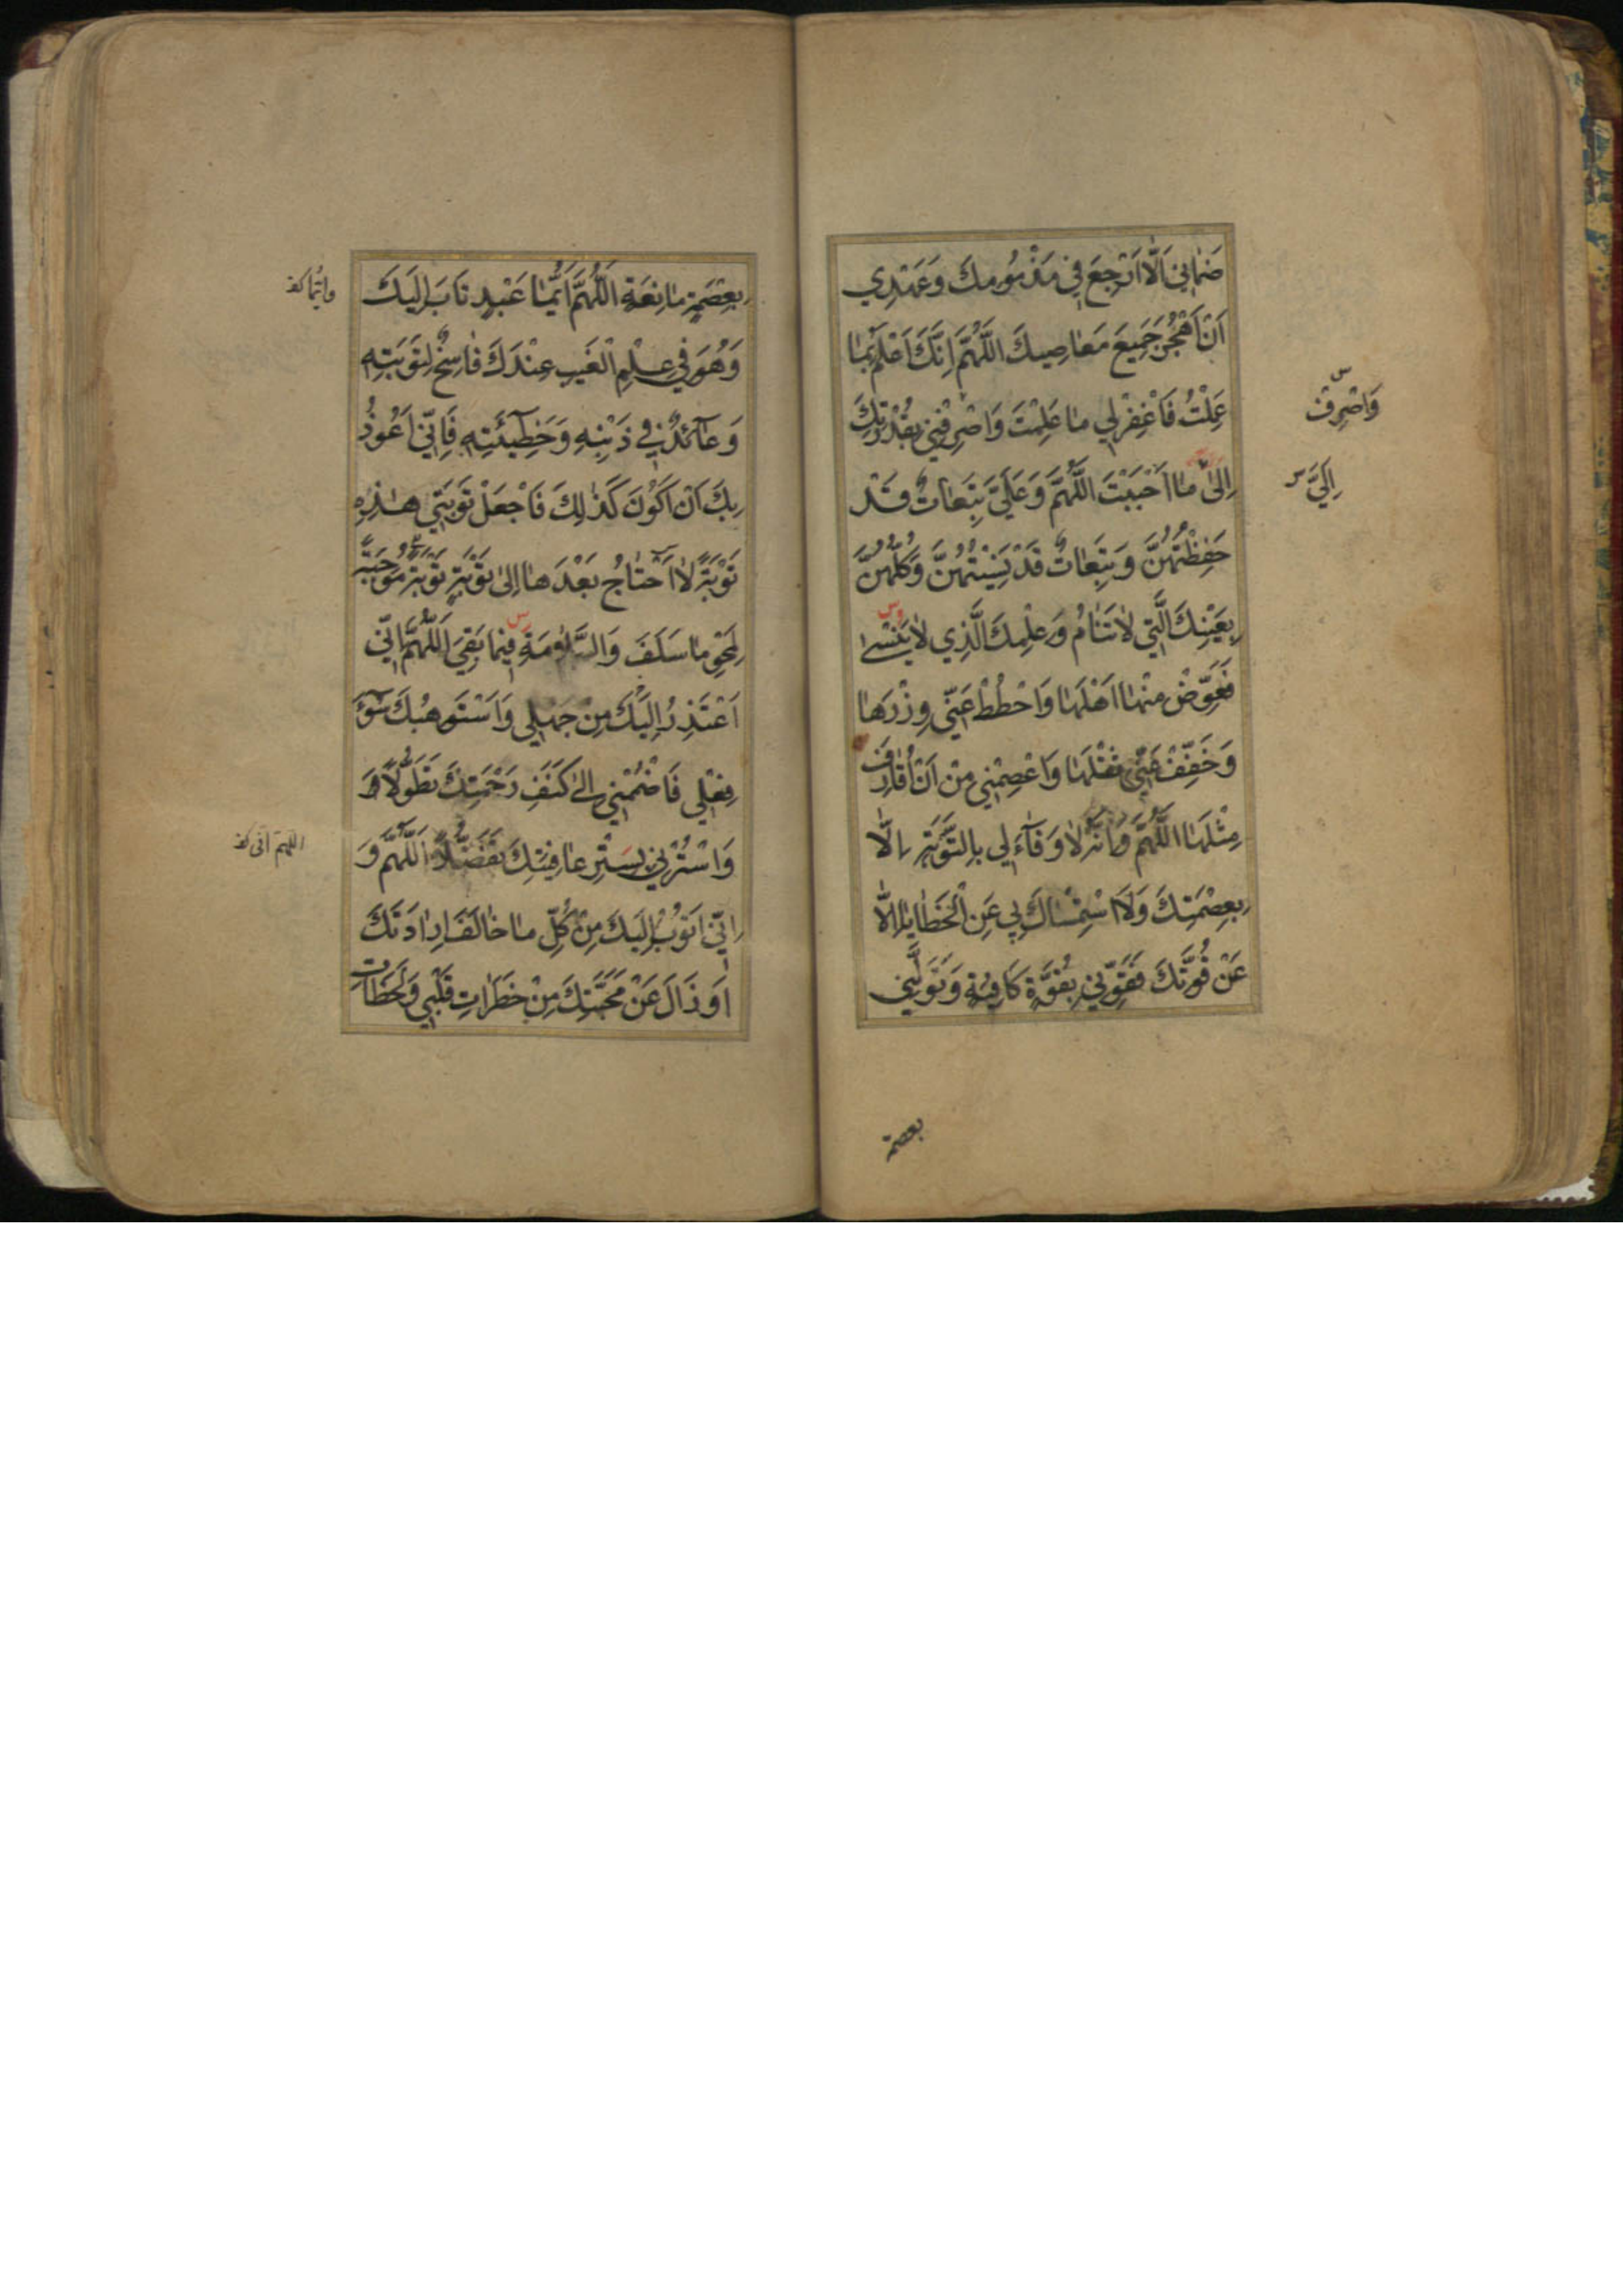 ضَمَانِي اَلَّا اَرْجِعَ فِي مَذْمُومِكَ وَعَهْدِي
اَنْ اَهْجُرَ جَمِيعَ مَعَاصِيكَ اَللّٰهُمَّ اِنَّكَ اَعْلَمُ بِمَا
عَمِلْتُ فَاغْفِرْ لِي مَا عَلِمْتَ وَاصْرِفْنِي بِقُدْرَتِكَ
اِلىٰ مَا اَحْبَبْتَ اَللّٰهُمَّ وَعَلَيَّ تَبِعَاتٌ قَدْ
حَفِظْتُهُنَّ وَتَبِعَاتٌ قَدْ نَسِيتُهُنَّ وَكُلُّهُنَّ
بِعَيْنِكَ الَّتِي لَا تَنَامُ وَعِلْمِكَ الَّذِي لَا يَنْسىٰ
فَعَوِّضْ مِنْهَا اَهْلَهَا وَاحْطُطْ عَنِّي وِزْرَهَا
وَخَفِّفْ عَنِّي ثِقْلَهَا وَاعْصِمْنِي مِنْ اَنْ اُقَارِفَ
مِثْلَهَا اَللّٰهُمَّ وَاِنَّهُ لَا وَفَاءَ لِي بِالتَّوْبَةِ اِلَّا
بِعِصْمَتِكَ وَلَا اسْتِمْسَاكَ بِي عَنِ الْخَطَايَا اِلَّا
عَنْ قُوَّتِكَ فَقَوِّنِي بِقُوَّةٍ كَافِيَةٍ وَتَوَلَّنِي
وَاصْرِفْ س
اِلَيَّ س
بعصمة
بِعِصْمَةٍ مَانِعَةٍ اَللّٰهُمَّ اَيُّمَا عَبْدٍ تَابَ اِلَيْكَ
وَهُوَ فِي عِلْمِ الْغَيْبِ عِنْدَكَ فَاسِخٌ لِتَوْبَتِهِ
وَعَائِدٌ فِي ذَنْبِهِ وَخَطِيئَتِهِ فَاِنِّي اَعُوذُ
بِكَ اَنْ اَكُونَ كَذٰلِكَ فَاجْعَلْ تَوْبَتِي هٰذِهِ
تَوْبَةً لَا اَحْتَاجُ بَعْدَهَا اِلىٰ تَوْبَةٍ تَوْبَةً مُوجِبَةً
لِمَحْوِ مَا سَلَفَ وَالسَّلَامَةِ فِيمَا بَقِيَ اَللّٰهُمَّ اِنِّي
اَعْتَذِرُ اِلَيْكَ مِنْ جَهْلِي وَاَسْتَوْهِبُكَ سُوءَ
فِعْلِي فَاضْمُمْنِي اِلىٰ كَنَفِ رَحْمَتِكَ تَطَوُّلًا وَ
وَاسْتُرْنِي بِسِتْرِ عَافِيَتِكَ تَفَضُّلًا اَللّٰهُمَّ وَ
اِنِّي اَتُوبُ اِلَيْكَ مِنْ كُلِّ مَا خَالَفَ اِرَادَتَكَ
اَوْ زَالَ عَنْ مَحَبَّتِكَ مِنْ خَطَرَاتِ قَلْبِي وَلَحَظَاتِ
وايّما كف
اللهم انّى كف